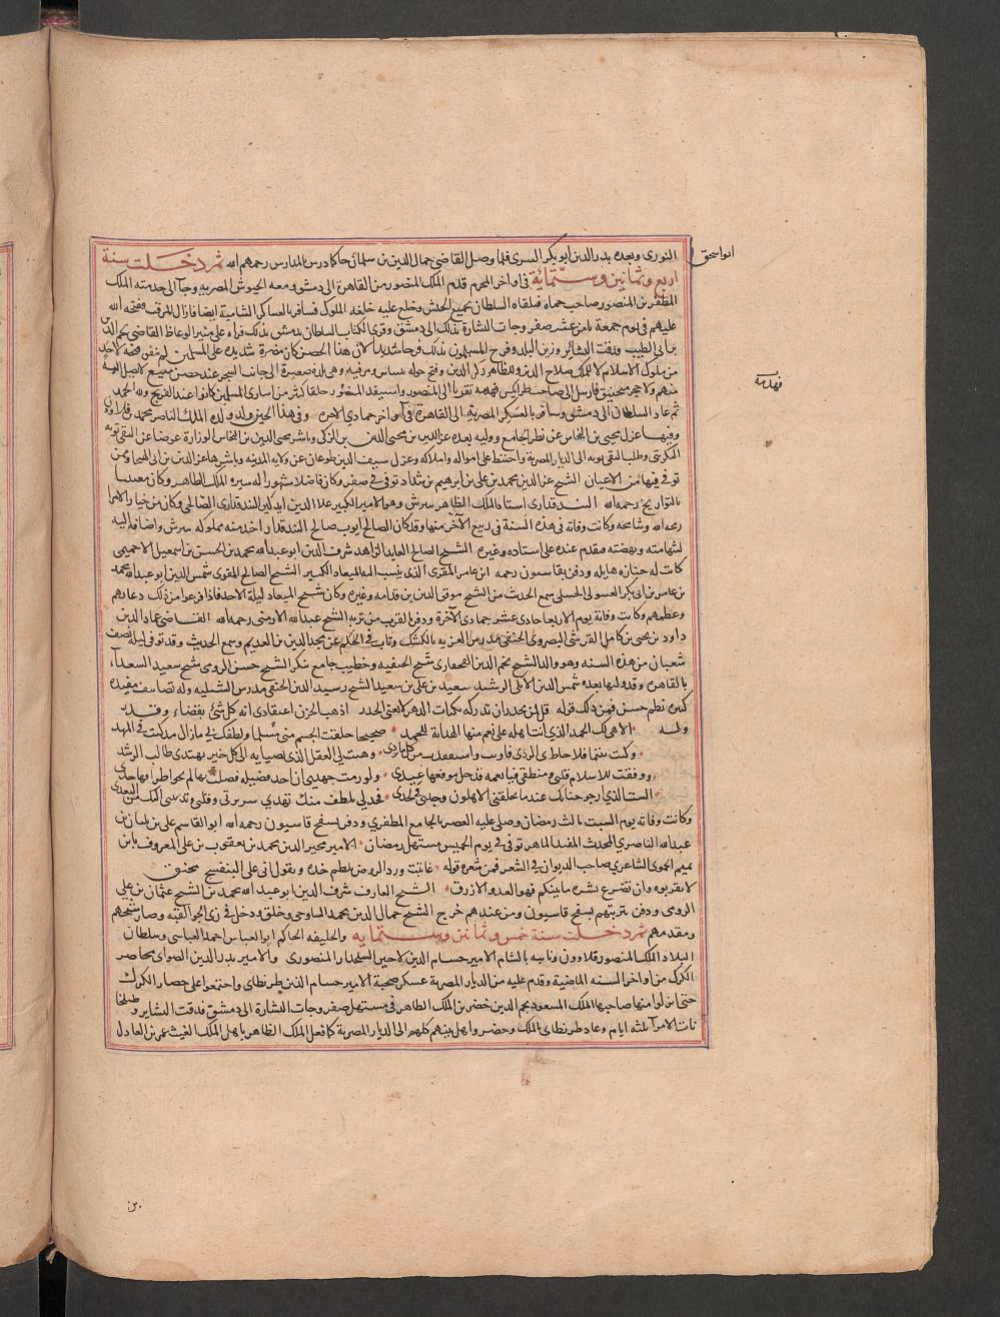 النوري وبعده بدر الدين ابو بكر البسري فلما وصل القاضي جمال الدين بن سلمان حاكما درس بالمدارس رحمهم الله ثم دخلت سنة
ابواسحق
اربع وثمانين وستمائة في اواخر المحرم قدم الملك المنصور من القاهرة الى دمشق ومعه الجيوش المصريه وجآ الى خدمته الملك
المظفر بن المنصور صاحب حماه فتلقاه السلطان بجميع الجيش وخلع عليه خلعة الملوك فسافر بالعساكر الشاميه ايضا فنازل المرقب ففتحه الله
عليهم في يوم جمعة ثامن عشر صفر وجات البشارة بذلك الى دمشق وقري الكتاب السلطان بدمشق بذلك قراه على منبر الوعاظ القاضي
بن ابي الطيب ودقت البشائر وزين البلد وفرح المسلمون بذلك فرحا شديدا لان هذا الحصن كان مضرة شديدة على المسلمين لم يتفق فتحه لاحد
من ملوك الاسلام لا الملك صلاح الدين وللظاهر ركن الدين وفتح حوله بلنياس ومرقيه وهي بلدة صغيرة الى جانب البحر عند حصن منيع لا يصل اليه
منهم ولا حجر منجنيق فارسل الى صاحب طرابلس فهدمه تقربا الى المنصور واستنقذ المنصور خلقا كثير من اسارى المسلمين كانوا عند الفرنج ولله الحمد
فهدمه
ثم عاد السلطان الى دمشق وسافر بالعسكر المصريه الى القاهرة في اواخر جمادي الاخره وفي هذا الحين ولد له ولده الملك الناصر محمد بن قلاوون
وفيها عزل محيي بن النحاس عن نظر الجامع ووليه بعده عز الدين بن محيي الدين بن الزكي وباشر محيي الدين بن النحاس الوزارة عوضا عن التقي توبه
التكريتي وطلب التقي توبه الى الديار المصريه واحتيط على امواله واملاكه وعزل سيف الدين طوغان عن ولايه المدينه وباشرها عز الدين بن ابي الهيجا وممن
توفي فيها من الاعيان الشيخ عز الدين محمد بن علي بن ابرهيم بن شداد توفي في صفر وكان فاضلا مشهورا له سيره الملك الظاهر وكان معتنيا
بالتواريخ رحمه الله البندقداري استاد الملك الظاهر بيبرس وهو الامير الكبير علا الدين ايدكين البندقداري الصالحي وكان من خيار الامرا
رحمه الله وسامحه وكانت وفاته في هذه السنة في ربيع الآخر منها وقد كان الصالح ايوب صالح البندقدار اخذ منه مملوكه بيبرس واضافه اليه
لشهامته ونهضته فتقدم عنده على استاده وغيره الشيخ الصالح العابد الزاهد شرف الدين ابو عبد الله محمد بن الحسن بن اسمعيل الاخميمي
كانت له جنازه هايله ودفن بقاسيون رحمه ابن عامر المقري الذي ينسب اليه الميعاد الكبير الشيخ الصالح المقري شمس الدين ابو عبد الله محمد
بن عامر بن ابي بكر الغسولي الحنبلي سمع الحديث من الشيخ موفق الدين بن قدامه وغيره وكان شيخ الميعاد ليلة الاحد فاذا فرغوا من ذلك دعا بهم
وعظهم وكانت وفاته يوم الاربعا حادي عشر جمادي الآخرة ودفن بالقرب من تربة الشيخ عبد الله الارمني رحمه الله القاضي عماد الدين
داود بن يحيى بن كامل القرشي البصروي الحنفي مدرس العزيه بالكشك وناب في الحكم عن مجد الدين بن العديم وسمع الحديث وقد توفي ليلة نصف
شعبان من هذه السنه وهو والد الشيخ نجم الدين القحفازي شيخ الحنفيه وخطيب جامع تنكز الشيخ حسن الرومي شيخ سعيد السعدآ،
بالقاهرة وقد وليها بعده شمس الدين الاتلي الرشيد سعيد بن علي بن سعيد الشيخ رسيد الدين الحنفي مدرس الشبليه وله تصانيف مفيده
كثيره نظم حسن فمن ذلك قوله قل لمن يحذر ان تدركه نكبات الدهر لا يغني الحذر اذهب الحزن اعتقادي انه كل شي بقضاء وقدر
وله الاهي لك الحمد الذي انت اهله على نعم منها الهداية للحمد صحيحا خلقت الجسم مني مسلما ولطفك بي ما زال مذ كنت في المهد
وكنت يتيما قد احاط بي الردى فاويت واستنقذت من كل ما يردي وهبت لي العقل الذي بضيايه الى كل خير يهتدي طالب الرشد
ووفقت للاسلام قلبي ومنطقي فيا نعمة قد حل موقعها عندي ولو رمت جهدي ان احد فضيله فصلت بها لم يحو اطرافها حدي
الست الذي ارجو حنانك عندما يخلفني الاهلون وحدي في لحدي فجد لي بلطف منك تهدي سريرتي وقلبي وتدنيني اليك من البعد
وكانت وفاته يوم السبت ثالث رمضان وصلي عليه العصر بالجامع المظفري ودفن بسفح قاسيون رحمه الله ابو القاسم علي بن بلبان بن
عبد الله الناصري المحدث المفيد الماهر توفي في يوم الخميس مستهل رمضان الامير مجير الدين محمد بن يعقوب بن علي المعروف بابن
تميم الحموي الشاعري صاحب الديوان في الشعر فمن شعره قوله عاينت ورد الروض يلطم خده ويقول اني على البنفسج محنق
لا تقربوه وان تضوع نشره ما بينكم فهو العدو الازرق الشيخ العارف شرف الدين ابو عبد الله محمد بن الشيخ عثمان بن علي
الرومي ودفن بتربتهم بسفح قاسيون ومن عندهم خرج الشيخ جمال الدين محمد الساوجي وحلق ودخل في زي الجوالقيه وصار شيخهم
ومقدمهم ثم دخلت سنة خمس وثمانين وستمايه والخليفه الحاكم ابو العباس احمد العباسي وسلطان
البلاد الملك المنصور قلاوون ونايبه بالشام الامير حسام الدين لاجين السلحدار المنصوري والامير بدر الدين الصوابي محاصر
الكرك من اواخر السنه الماضية وقدم عليه من الديار المصرية عسكر صحبة الامير حسام الدين طرنطاي واجتمعوا على حصار الكرك
حتى انزلوا منها صاحبها الملك المسعود نجم الدين خضر بن الملك الظاهر في مستهل صفر وجات البشارة الى دمشق فدقت البشاير
ثلاثة ايام وعاد طرنطاي بالملك وخضر واهل بيتهم كلهم الى الديار المصرية كما فعل الملك الظاهر باهل الملك المغيث عمر بن العادل
بن